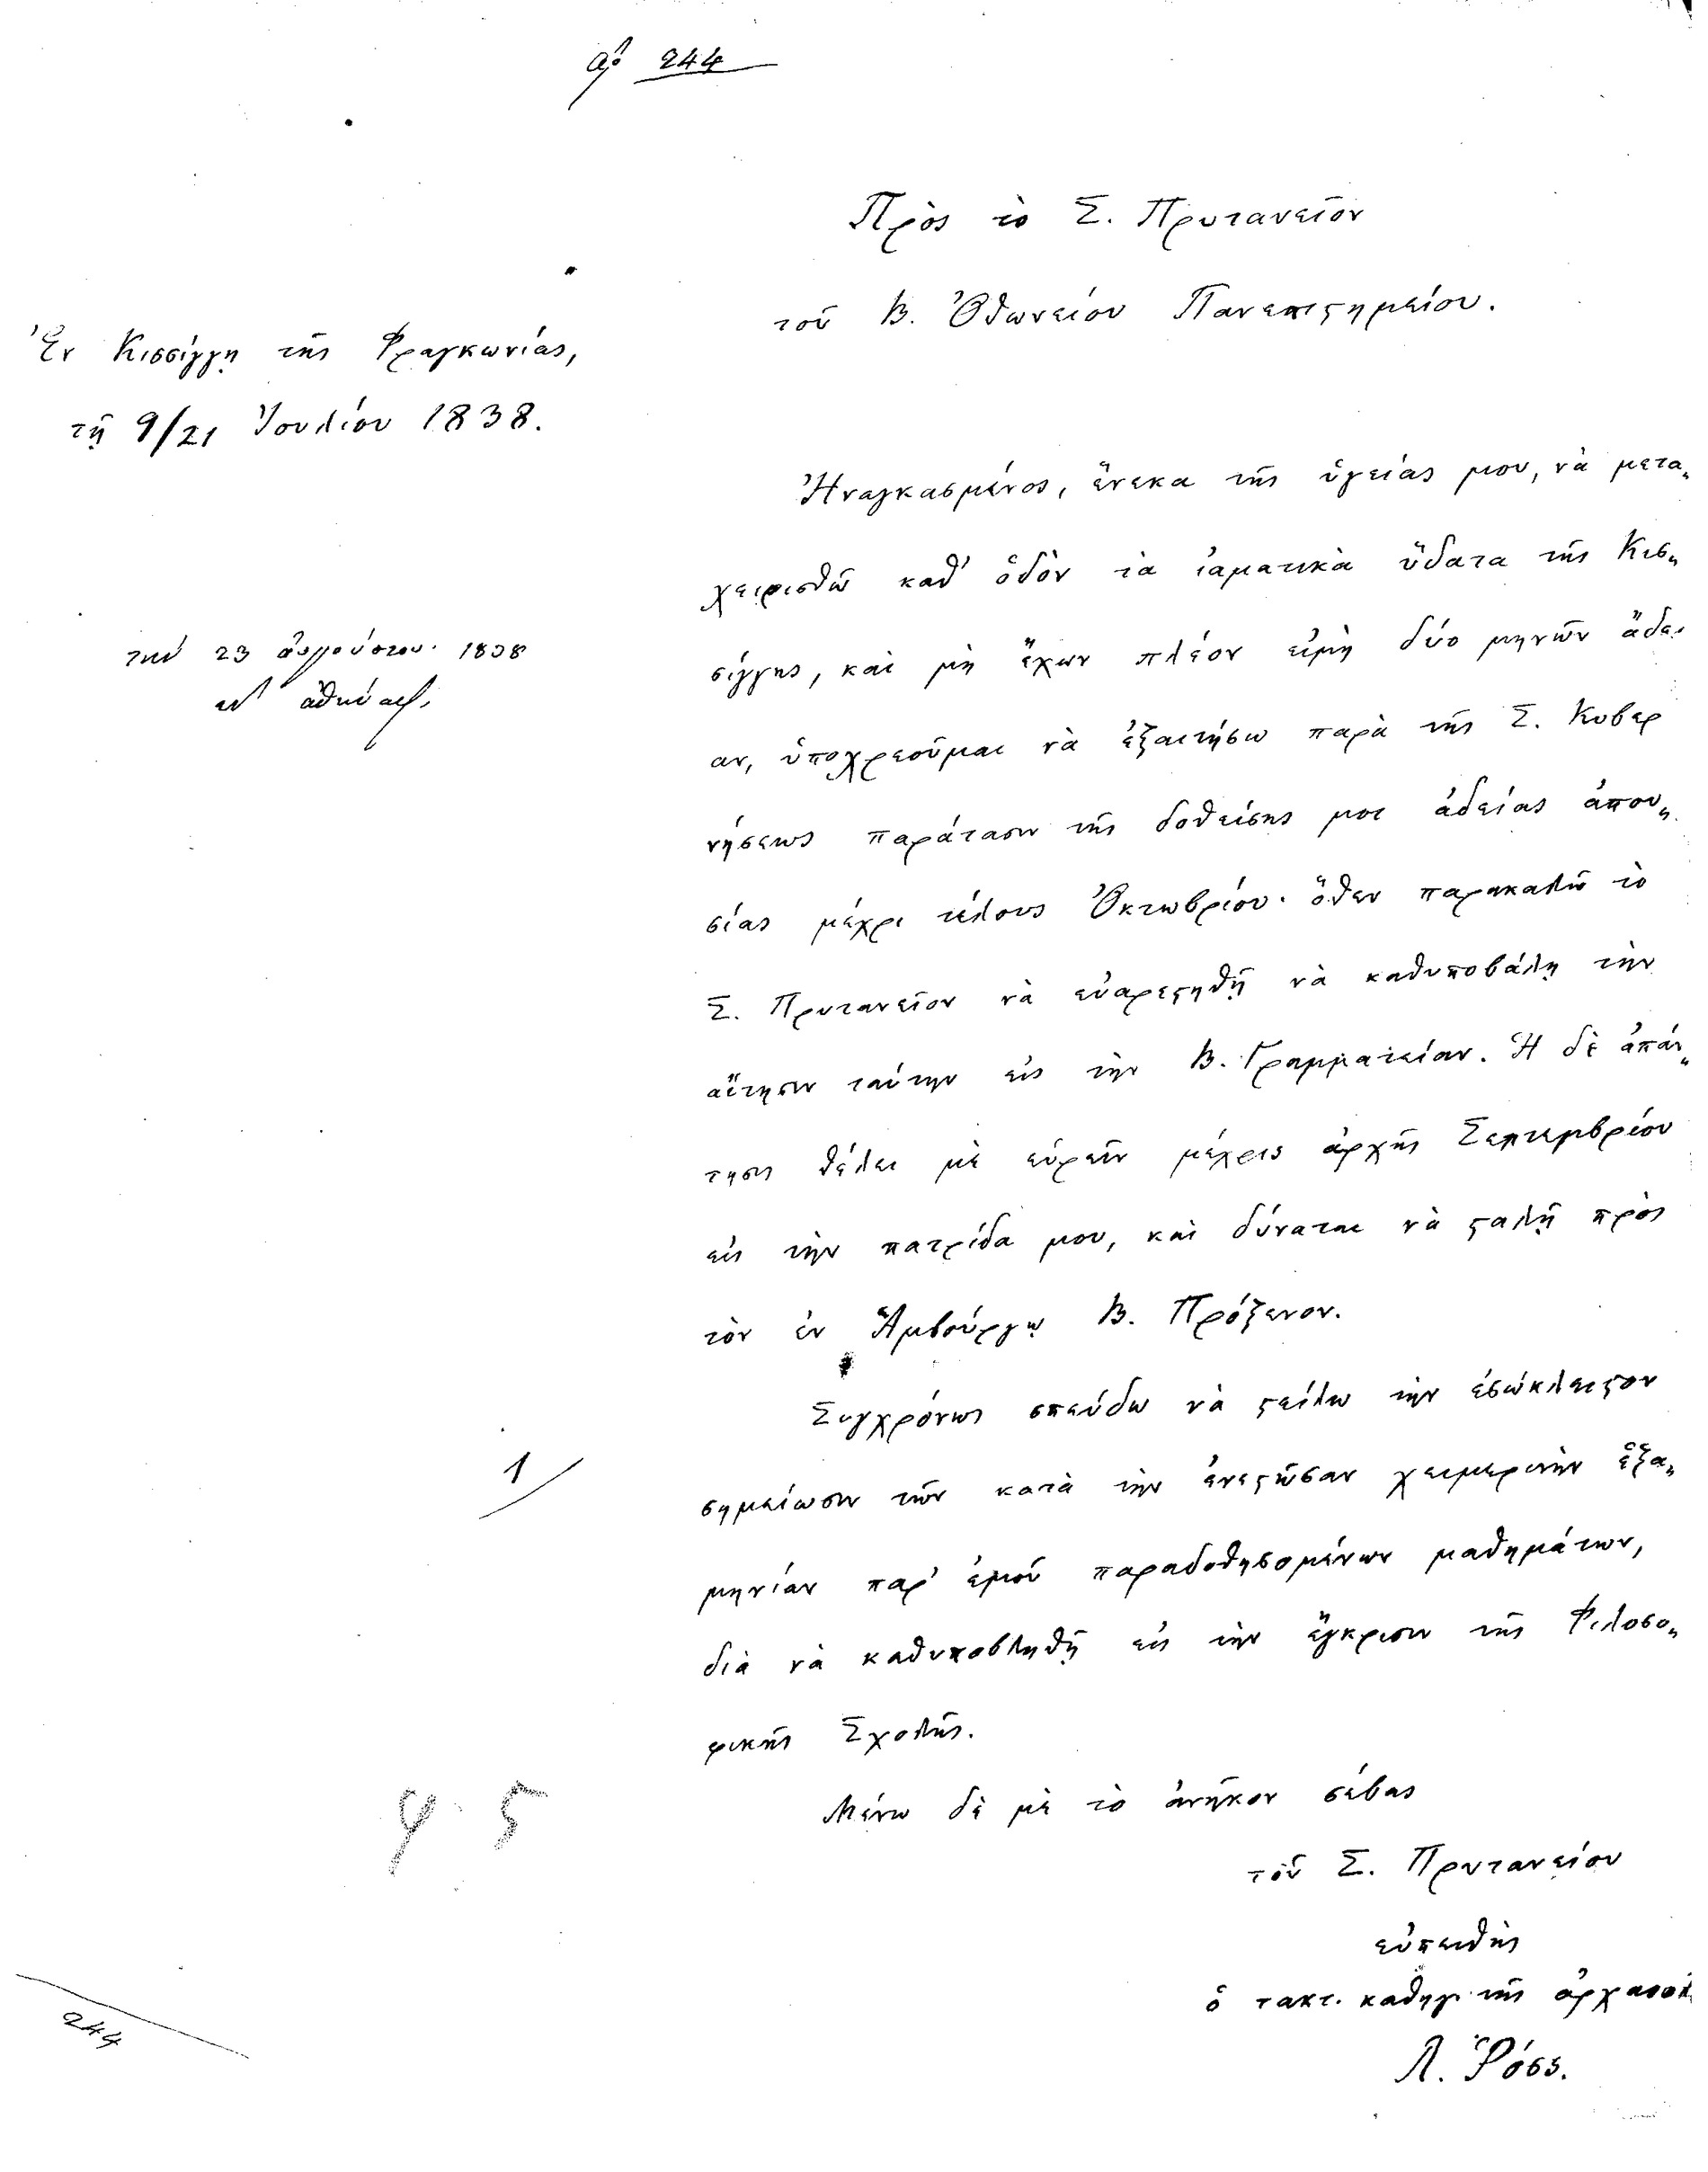 ἀρ 244
Πρὸς τὸ Σ. Πρυτανεῖον
τοῦ Β. Ὀθωνείου Πανεπιςημείου.
Ἐν Κισσίγγῃ τῆς Φραγκωνίας,
τῇ 9/21 Ἰουλίου 1838.
Ἠναγκασμένος, ἕνεκα τῆς ὑγείας μου, νὰ μετα„
χειρισθῶ καθ' ὁδὸν τὰ ἰαματικὰ ὕδατα τῆς Κισ„
σίγγης, καὶ μὴ ἔχων πλέον εἰμὴ δύο μηνῶν ἄδει
αν, ὑποχρεοῦμαι νὰ ἐξαιτήσω παρὰ τῆς Σ. Κυβερ
νήσεως παράτασιν τῆς δοθείσης μοι ἀδείας ἀπου„
σίας μέχρι τέλους Ὀκτωβρίου· ὅθεν παρακαλῶ τὸ
Σ. Πρυτανεῖον νὰ εὐαρεςηθῇ νὰ καθυποβάλῃ τὴν
αἴτησιν ταύτην εἰς τὴν Β. Γραμματείαν. Ἡ δὲ ἀπάν„
τησις θέλει μὲ εὑρεῖν μέχρις ἀρχῆς Σεπτεμβρίου
εἰς τὴν πατρίδα μου, καὶ δύναται νὰ ςαλῇ πρὸς
τὸν ἐν Ἁμβούργῳ Β. Πρόξενον.
Συγχρόνως σπεύδω νὰ ςείλω τὴν ἐσώκλειςον
σημείωσιν τῶν κατὰ τὴν ἐνεςῶσαν χειμερινὴν ἑξα„
μηνίαν παρ' ἐμοῦ παραδοθησομένων μαθημάτων,
διὰ νὰ καθυποβληθῇ εἰς τὴν ἔγκρισιν τῆς Φιλοσο„
φικῆς Σχολῆς.
Μένω δὲ μὲ τὸ ἀνῆκον σέβας
τοῦ Σ. Πρυτανείου
εὐπειθὴς
ὁ τακτ. καθηγ. τῆς ἀρχαιολ
Λ. Ῥόσς.
τὴν 23 αὐγούστου. 1838
ἐν ἀθήναις.
1
φ 5
244